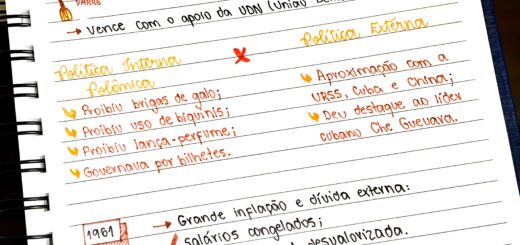 → Vence com o apoio da UDN (União
Política Interna
Polêmica
Proibiu brigas de galo;
Proibiu uso de biquínis;
Proibiu lança-perfume;
Governava por bilhetes.
X
Política Externa
Aproximação com a
URSS, Cuba e China;
Deu destaque ao líder
cubano Che Guevara.
1961
→ Grande inflação e dívida externa:
salários congelados;
desvalorizada.